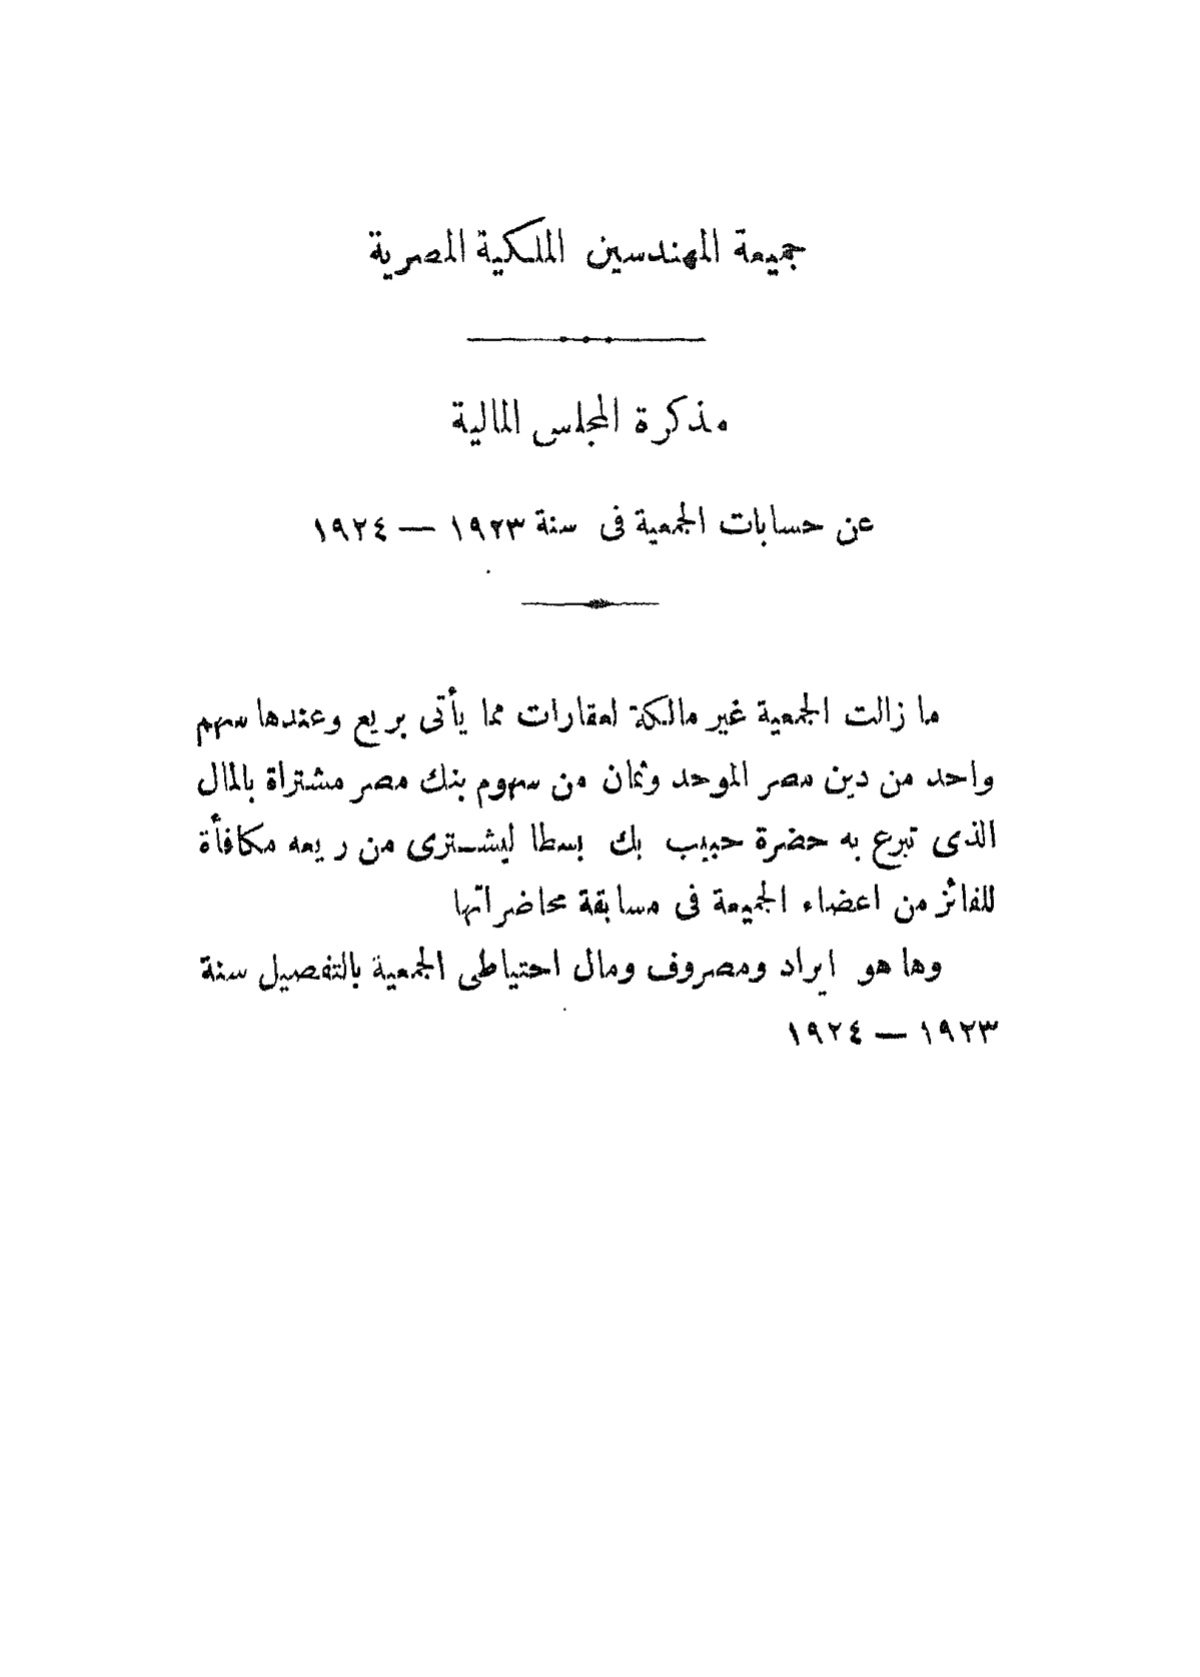 جميعة المهندسين الملكية المصرية
مذكرة المجلس المالية
عن حسابات الجمعية فى سنة ١٩٢٣ — ١٩٢٤
ما زالت الجمعية غير مالكة لعقارات مما يأتى بريع وعندها سهم
واحد من دين مصر الموحد وثمان من سهوم بنك مصر مشتراة بالمال
الذى تبرع به حضرة حبيب بك بسطا ليشترى من ريعه مكافأة
للفائز من اعضاء الجميعة فى مسابقة محاضراتها
وها هو ايراد ومصروف ومال احتياطى الجمعية بالتفصيل سنة
١٩٢٣ — ١٩٢٤